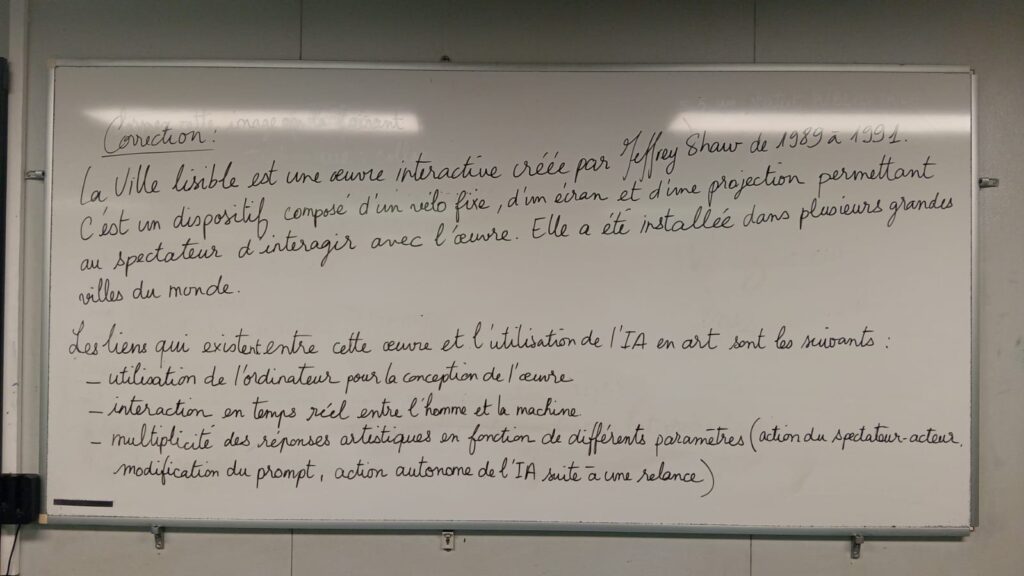 Correction :
La Ville lisible est une œuvre interactive créée par Jeffrey Shaw de 1989 à 1991.
C'est un dispositif composé d'un vélo fixe, d'un écran et d'une projection permettant
au spectateur d'interagir avec l'œuvre. Elle a été installée dans plusieurs grandes
villes du monde.
Les liens qui existent entre cette œuvre et l'utilisation de l'IA en art sont les suivants :
– utilisation de l'ordinateur pour la conception de l'œuvre
– interaction en temps réel entre l'homme et la machine.
– multiplicité des réponses artistiques en fonction de différents paramètres (action du spectateur-acteur,
modification du prompt, action autonome de l'IA suite à une relance)